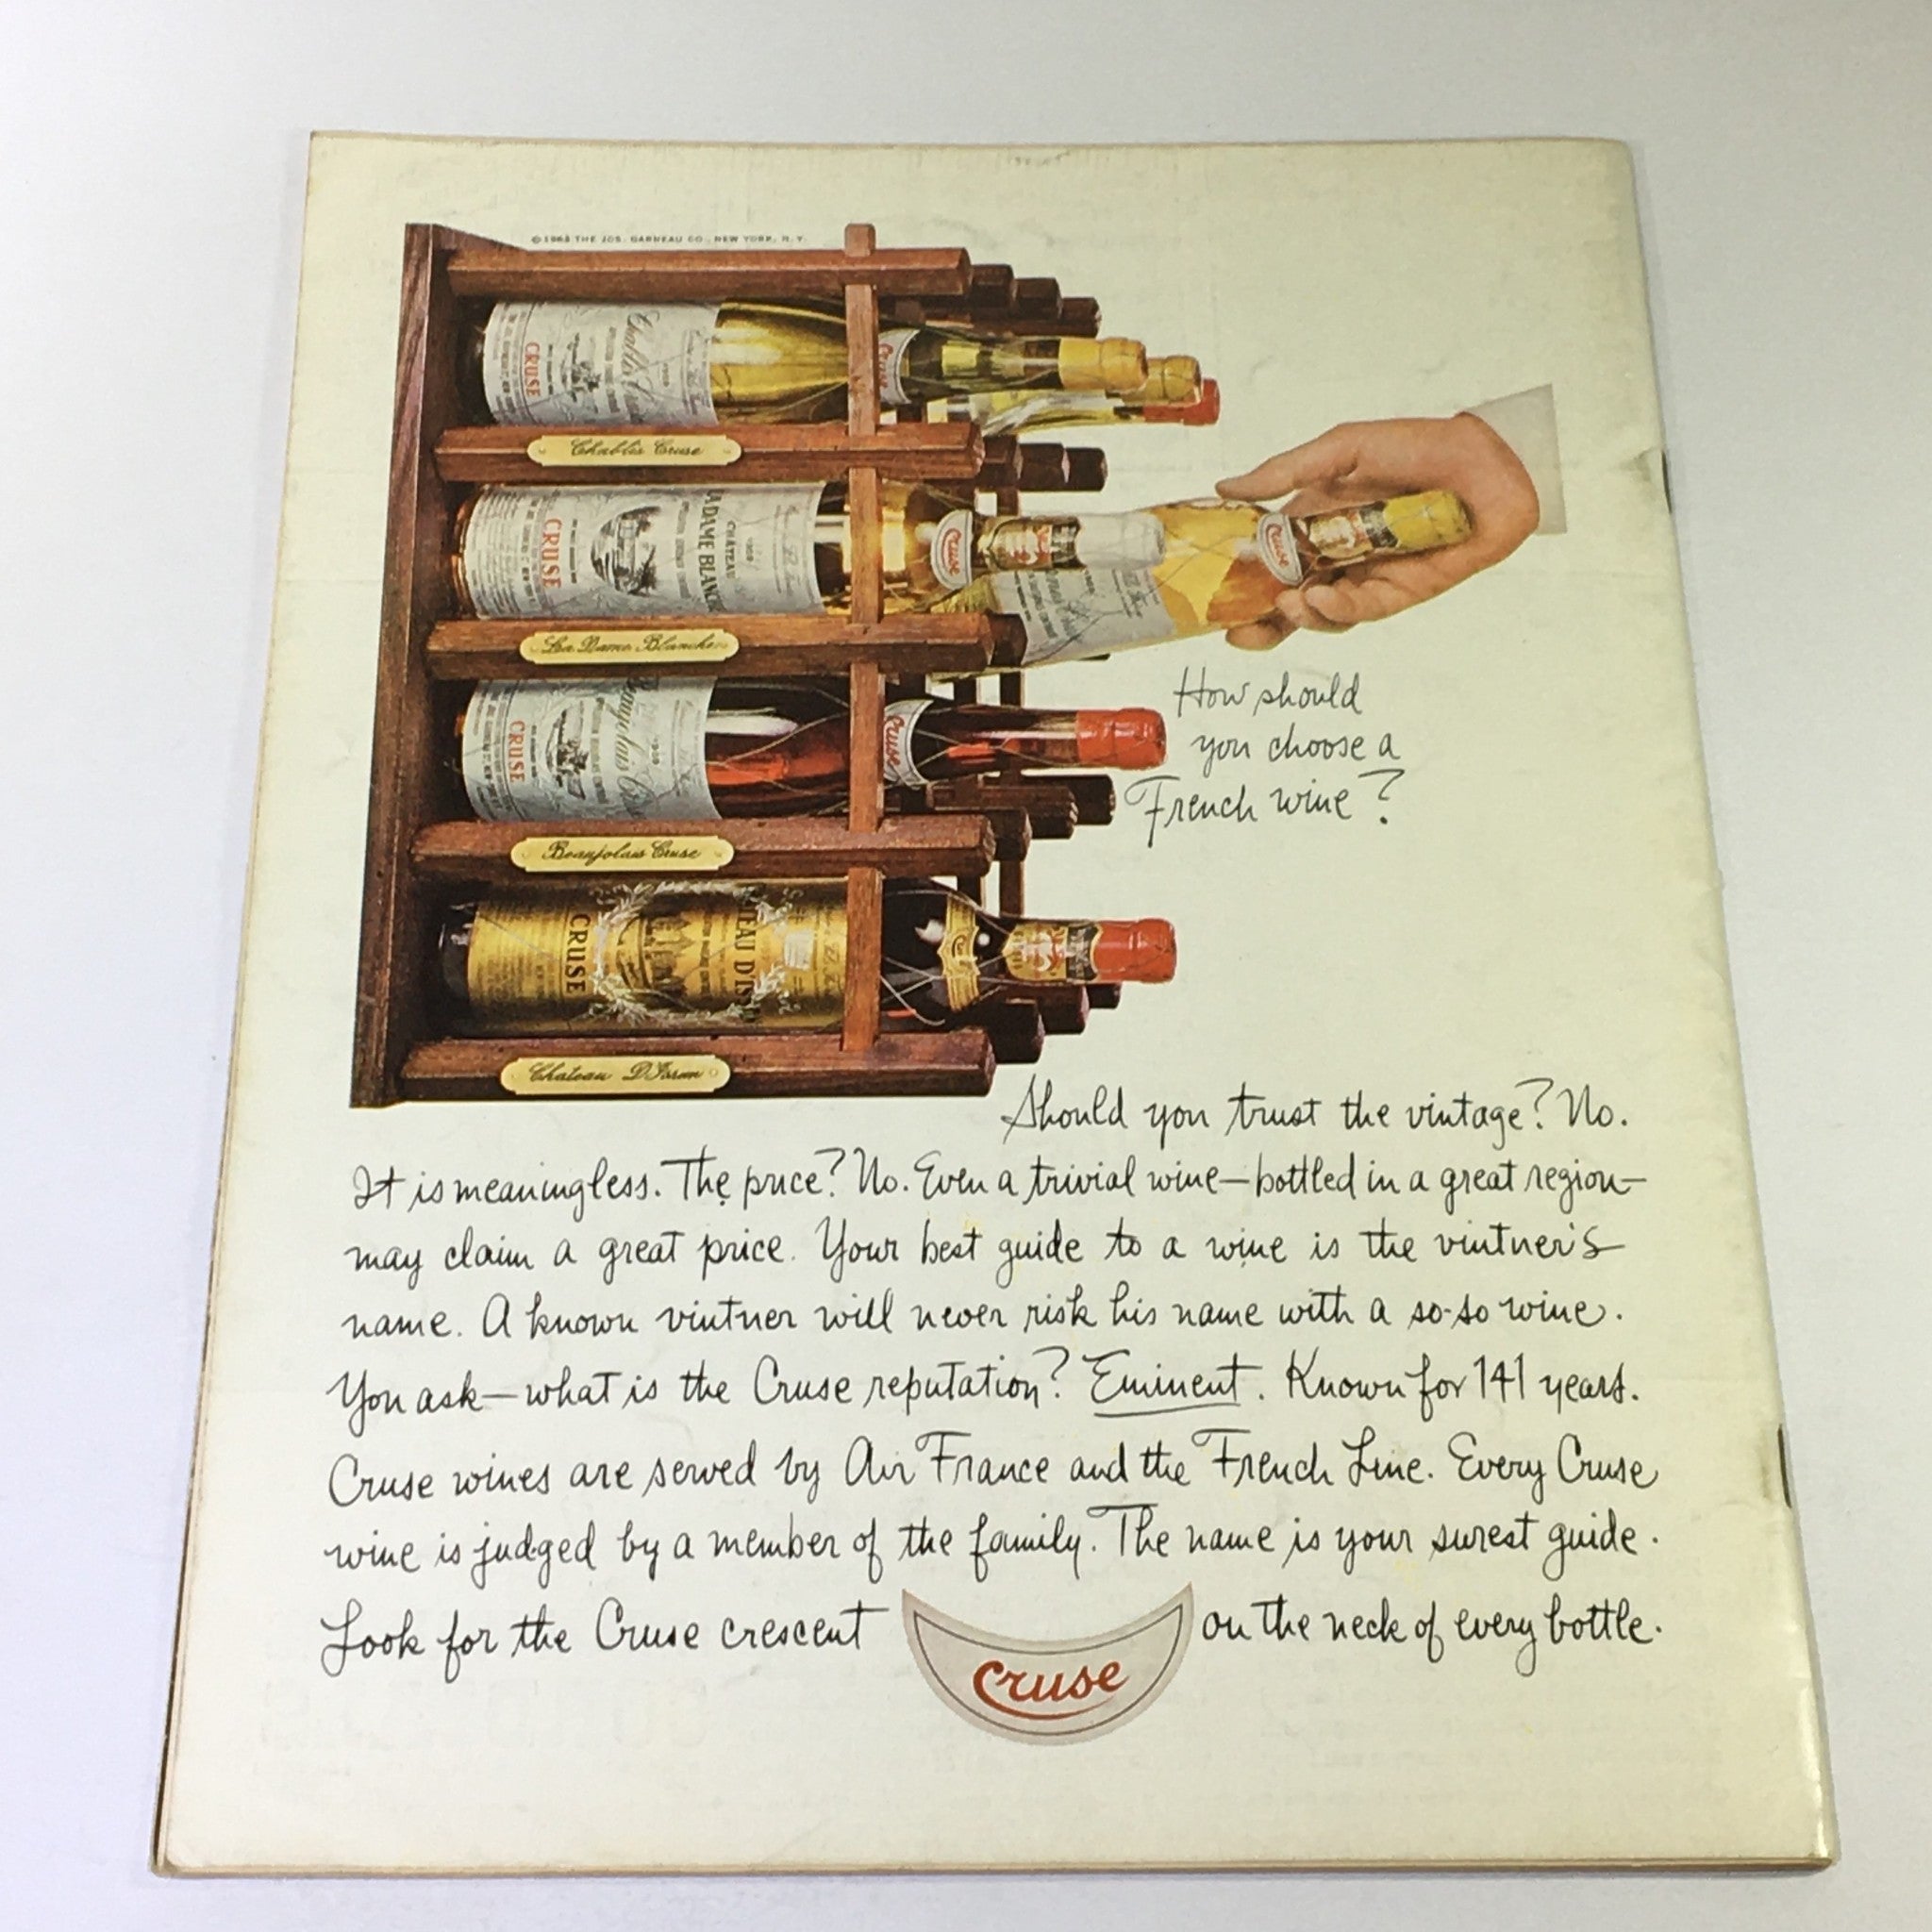 THE JOS. GARNEAU CO., NEW YORK, N. Y.
CRUSE
Cruse
Chablis Cruse
CHATEAU
CRUSE
Cruse
Cruse
La Dame Blanche
CRUSE
Cruse
Beaujolais Cruse
CRUSE
Chateau D'Issan
How should
you choose a
French wine?
Should you trust the vintage? No.
It is meaningless. The price? No. Even a trivial wine—bottled in a great region—
may claim a great price. Your best guide to a wine is the vintner's
name. A known vintner will never risk his name with a so-so wine.
You ask—what is the Cruse reputation? Eminent. Known for 141 years.
Cruse wines are served by Air France and the French Line. Every Cruse
wine is judged by a member of the family. The name is your surest guide.
Look for the Cruse crescent on the neck of every bottle.
Cruse